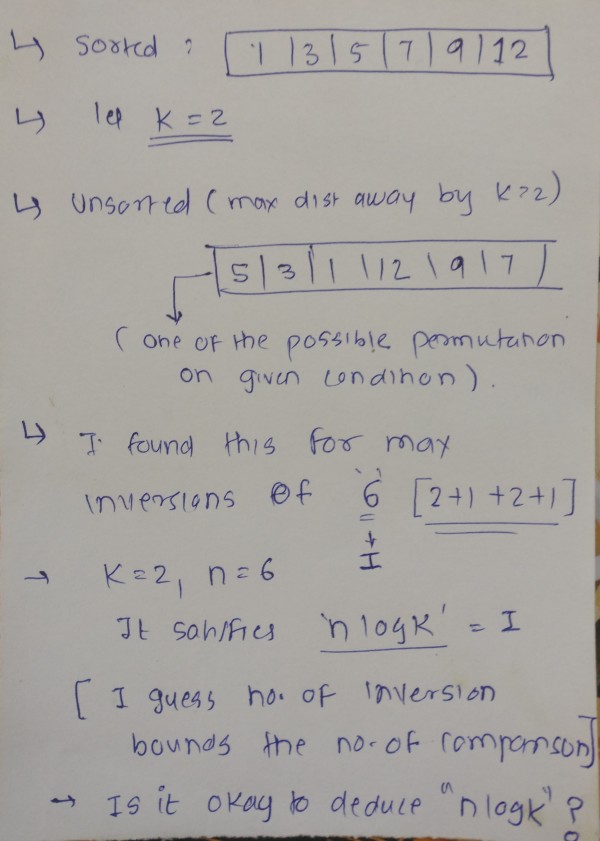 ↳ Sorted : 1 | 3 | 5 | 7 | 9 | 12
↳ let K = 2
↳ Unsorted ( max dist away by K=2)
5 | 3 | 1 | 12 | 9 | 7
( one of the possible permutation
on given condition ).
↳ I found this for max
inversions of '6' [2+1+2+1]
↓
I
→ K=2, n=6
It satisfies 'nlogK' = I
[ I guess no. of inversion
bounds the no. of comparison]
→ Is it okay to deduce "nlogk" ?